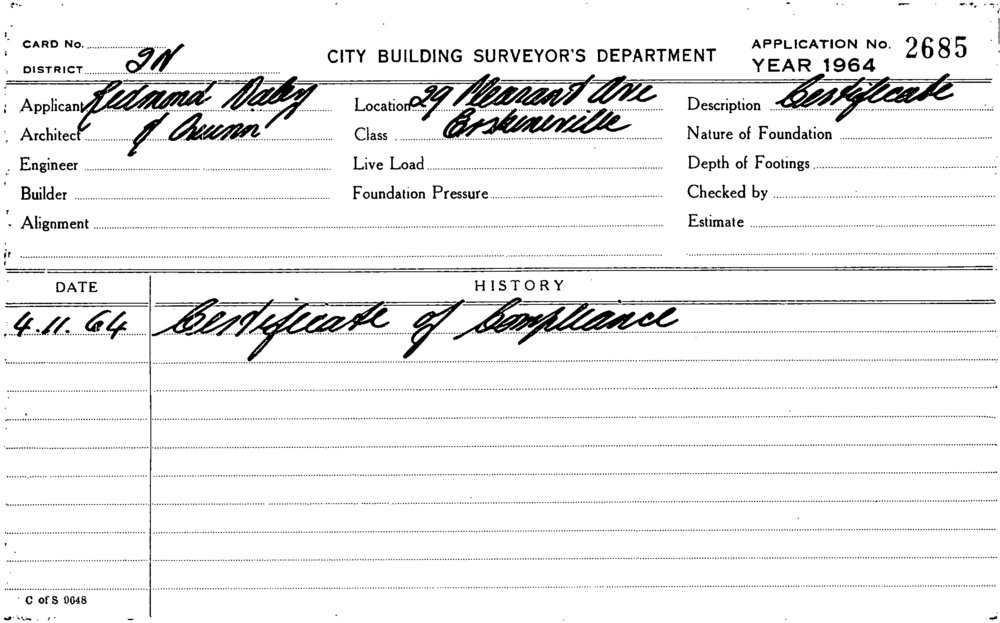 CARD No.
DISTRICT 2N
CITY BUILDING SURVEYOR'S DEPARTMENT
APPLICATION No. 2685
YEAR 1964
Applicant Redmond Daley Location 29 Pleasant Ave Description Certificate
Architect & Quinn Class Erskineville Nature of Foundation
Engineer Live Load Depth of Footings
Builder Foundation Pressure Checked by
Alignment Estimate
DATE HISTORY
4.11.64 Certificate of Compliance
C of S 9648